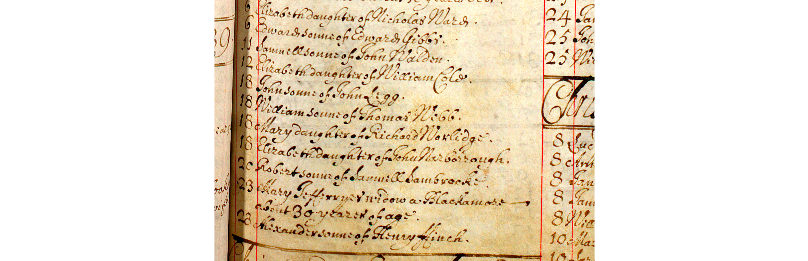 6 Elizabeth daughter of Nicholas Ward.
6 Edward sonne of Edward Gibbs.
11 Samuell sonne of John Walden.
12 Elizabeth daughter of William Cole.
18 John sonne of John Legg.
18 William sonne of Thomas Webb.
18 Mary daughter of Richard Worlidge.
18 Elizabeth daughter of John Narborough.
20 Robert sonne of Samuell Sambrooke
23 Mary Jefferryes widow a Blackamore
about 30 yeares of age.
23 Alexander sonne of Henry ffinch.
24 Jan
25 Joh
25
8 Luc
8
8 Jan
8 Jam
8 Wil
10 Ma
10
39